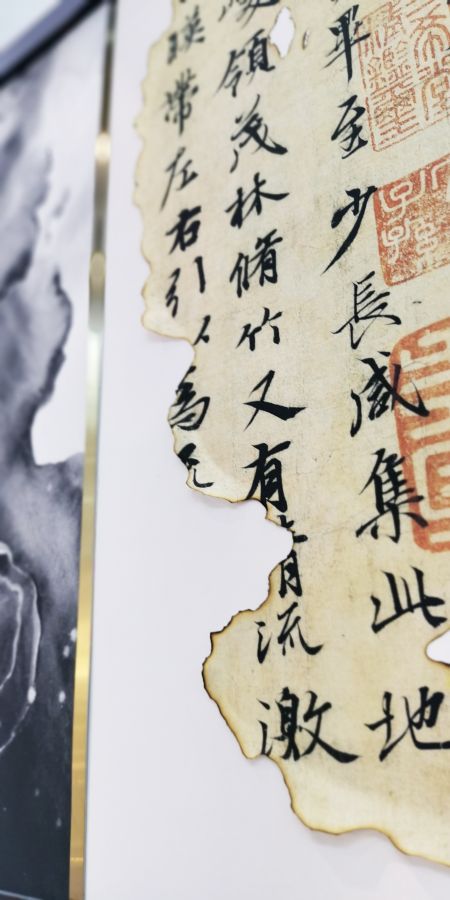 畢至少長咸集此地
峻領茂林脩竹又有清流激
暎帶左右引以為